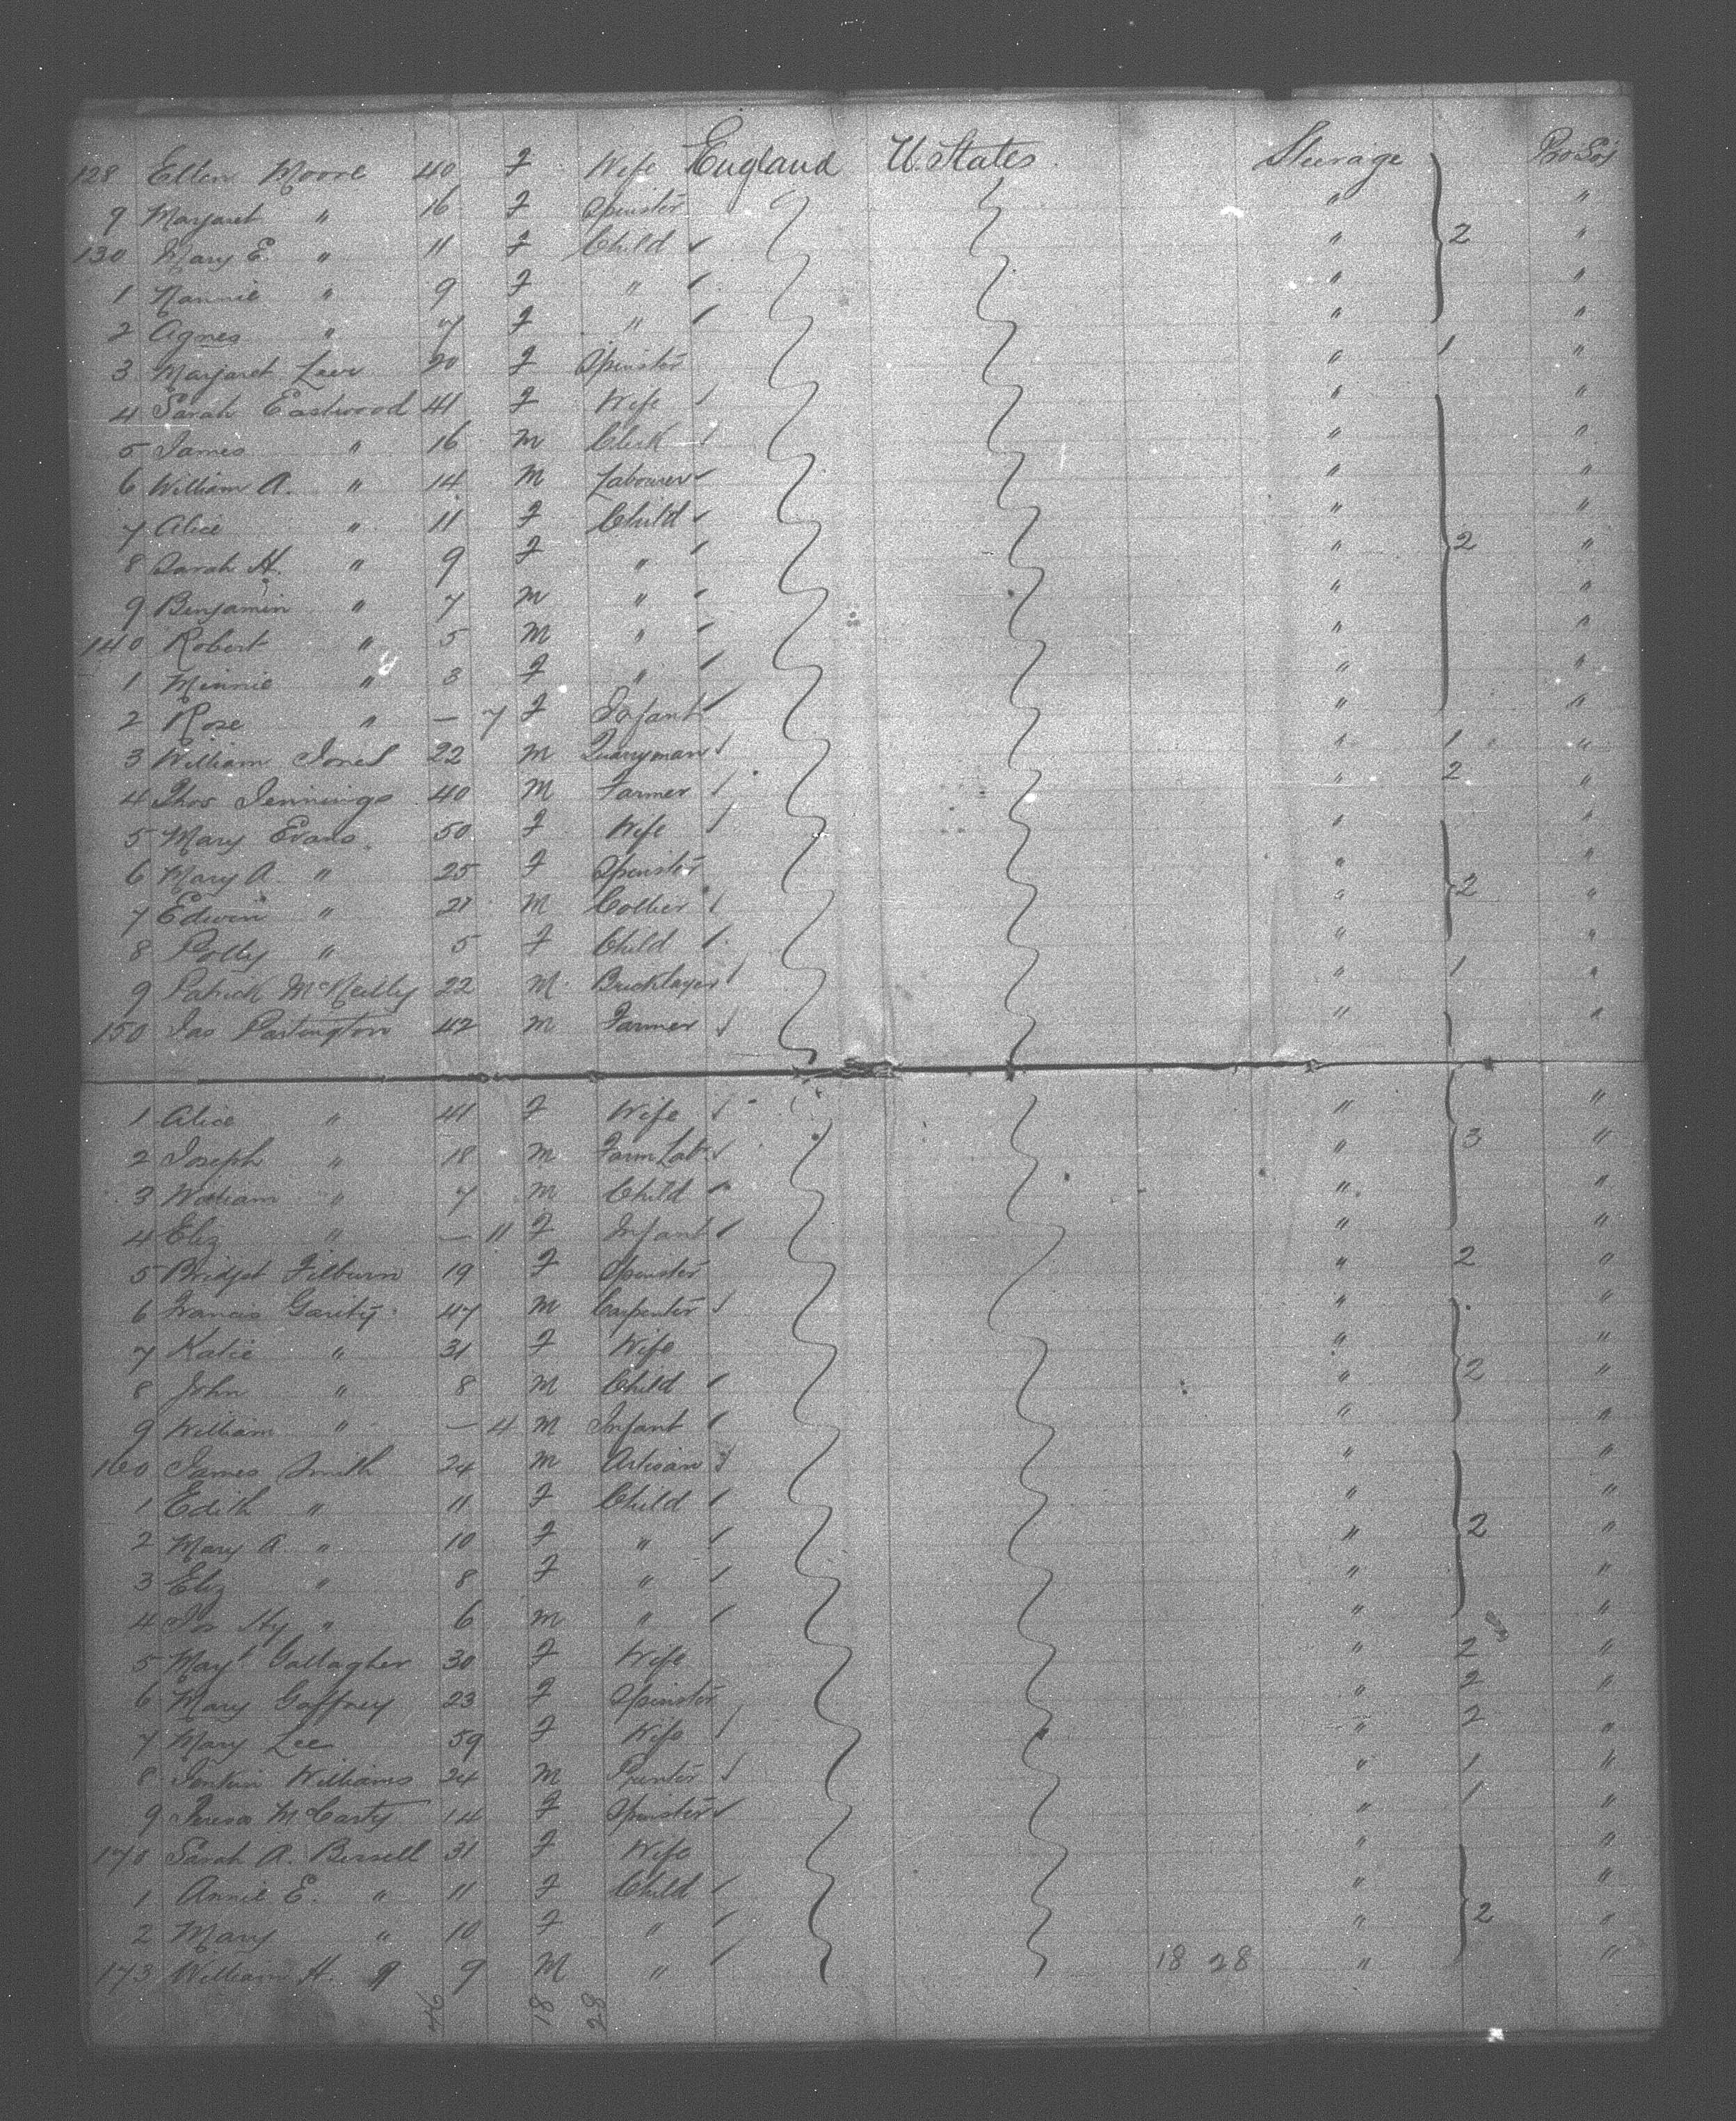 128 Ellen Moore 40 F Wife England U. States Steerage
9 Margaret " 16 F Spinster " 2 "
130 Mary E. " 11 F Child " "
1 Nannie " 9 F " " "
2 Agnes " 7 F " " "
3 Margaret 20 F Spinster " 1 "
4 Sarah Eastwood 41 F Wife " "
5 James " 16 M Clerk " "
6 William A. " 14 M Labourer " "
7 Alice " 11 F Child " "
8 Sarah H. " 9 F " " 2 "
9 Benjamin " 7 M " " "
140 Robert " 5 M " " "
1 Minnie " 3 F " " "
2 Rose " — 7 F Infant " "
3 William Jones 22 M Quarryman " 1 "
4 Thos Jennings 40 M Farmer " 2 "
5 Mary Evans 50 F Wife " "
6 Mary A. " 25 F Spinster " "
7 Edwin " 21 M Collier " 2 "
8 Polly " 5 F Child " "
9 Patrick McNeilly 22 M Bricklayer " 1 "
150 Jas Partington 42 M Farmer " "
1 Alice " 41 F Wife " "
2 Joseph " 18 M Farm Lab. " 3 "
3 William " 7 M Child " "
4 Eliz " — 11 F Infant " "
5 Bridget Filburn 19 F Spinster " 2 "
6 Francis Garity 47 M Carpenter " "
7 Katie " 31 F Wife " "
8 John " 8 M Child " 2 "
9 William " — 4 M Infant " "
160 James Smith 24 M Artisan " "
1 Edith " 11 F Child " "
2 Mary A. " 10 F " " 2 "
3 Eliz " 8 F " " "
4 Hy " 6 M " " "
5 Mayt Gallagher 30 F Wife " 2 "
6 Mary Gaffney 23 F Spinster " 2 "
7 Mary Lee 59 F Wife " 2 "
8 Jenkin Williams 24 M Printer " 1 "
9 Teresa McCarty 14 F Spinster " 1 "
170 Sarah A. Bissell 31 F Wife " "
1 Annie E. " 11 F Child " "
2 Mary " 10 F " " 2 "
173 William H. " 9 M " 18 28 " "
46 18 28